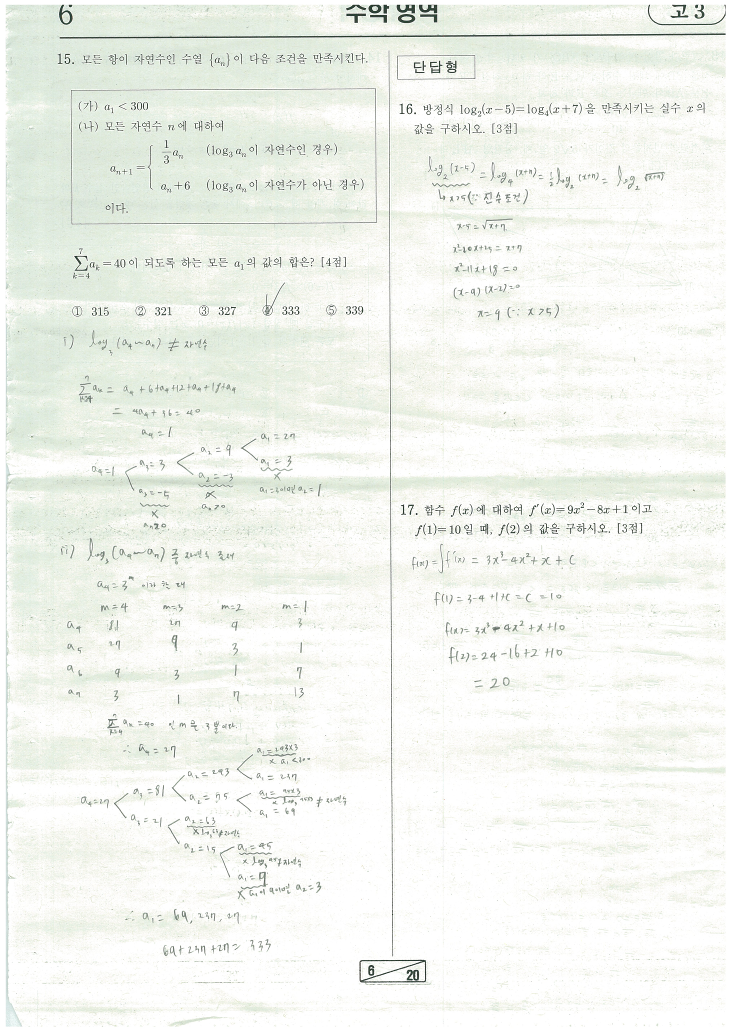 6
수학 영역
고 3
15. 모든 항이 자연수인 수열 {aₙ}이 다음 조건을 만족시킨다.
(가) a₁ < 300
(나) 모든 자연수 n에 대하여
aₙ₊₁ = { 1/3 aₙ (log₃aₙ이 자연수인 경우)
aₙ+6 (log₃aₙ이 자연수가 아닌 경우)
이다.
∑(k=4→7) aₖ = 40이 되도록 하는 모든 a₁의 값의 합은? [4점]
① 315 ② 321 ③ 327 ④ 333 ⑤ 339
i) log₃(a₄~a₇) ≠ 자연수
aₙ = a₄ + 6+a₄+12+a₄+18+a₄
= 4a₄ + 36 = 40
a₄ = 1
a₁ = 27
a₂ = 9
a₄=1 a₃ = 3 a₁ = 3
a₂ = -3 x
a₃ = -5 x a₁=3이면 a₂ = 1
x aₙ>0
aₙ>0
ii) log₃(a₄~a₇) 중 자연수 존재
a₄ = 3ᵐ 이라 할 때
m=4 m=3 m=2 m=1
a₄ 81 27 9 3
a₅ 27 9 3 1
a₆ 9 3 1 7
a₇ 3 1 7 13
aₙ = 40 인 m은 3뿐이다.
∴ a₄ = 27
a₁ = 243×3
x a₁<300
a₂ = 243
a₃ = 81 a₁ = 237
a₄=27 a₂ = 75 a₁ = 75×3
x log₃ ≠ 자연수
a₁ = 69
a₃ = 21 a₂ = 63
x log₃63≠자연수
a₂ = 15 a₁ = 45
x log₃45≠자연수
a₁ = 9
x a₁이 9이면 a₂ = 3
∴ a₁ = 69, 237, 27
69 + 237 + 27 = 333
단답형
16. 방정식 log₂(x-5)=log₄(x+7)을 만족시키는 실수 x의
값을 구하시오. [3점]
log₂(x-5) = log₄(x+7) = ½log₂(x+7) = log₂√(x+7)
↳ x>5 (∵ 진수조건)
x-5 = √(x+7)
x²-10x+25 = x+7
x²-11x+18 = 0
(x-9)(x-2)=0
x=9 (∵ x>5)
17. 함수 f(x)에 대하여 f′(x)=9x²-8x+1이고
f(1)=10일 때, f(2)의 값을 구하시오. [3점]
f(x) = ∫f′(x) = 3x³-4x²+x+C
f(1) = 3-4+1+C = C = 10
f(x) = 3x³-4x²+x+10
f(2) = 24-16+2+10
= 20
6
20